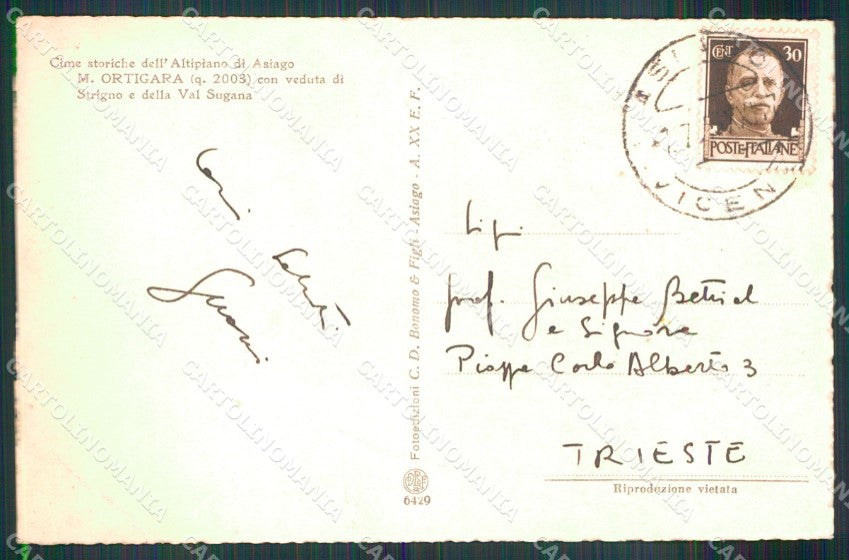 Cime storiche dell'Altipiano di Asiago
M. ORTIGARA (q. 2003) con veduta di
Strigno e della Val Sugana
Cari
Saluti
Fotoedizioni C. D. Bonomo & Figli - Asiago - A. XX E. F.
6429
CENT 30
POSTE ITALIANE
VICEN
prof. Giuseppe
e Signora
Piazza Carlo Alberto 3
TRIESTE
Riproduzione vietata
CARTOLINOMANIA